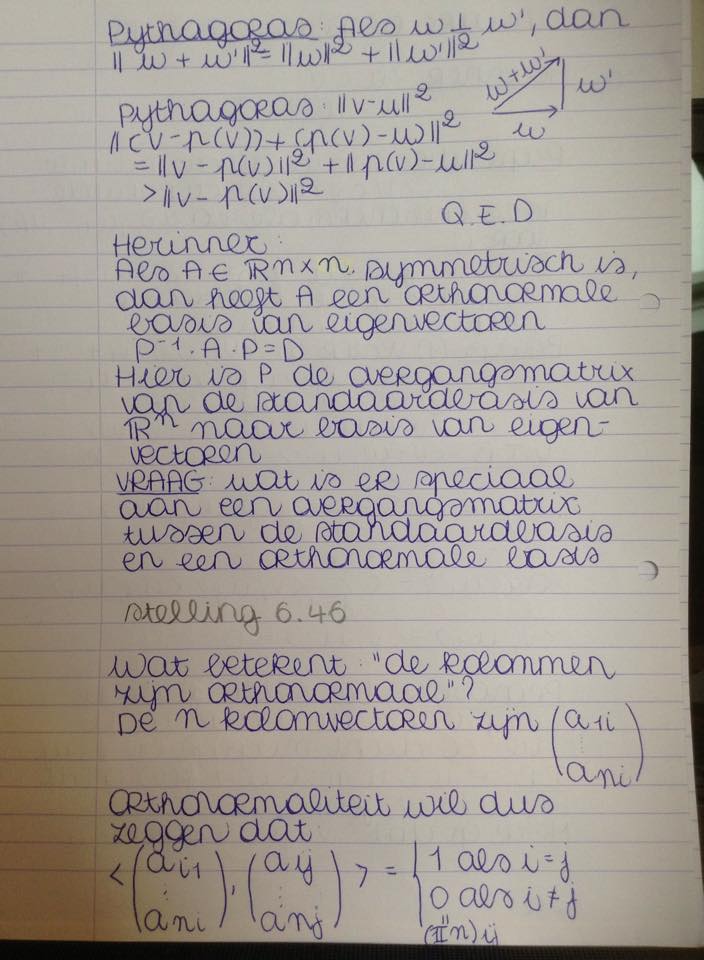 Pythagoras: Als w ⊥ w', dan
||w + w'||² = ||w||² + ||w'||²
w+w'
w'
w
Pythagoras: ||v-u||²
||(v-p(v))+(p(v)-u)||²
= ||v-p(v)||² + ||p(v)-u||²
> ||v-p(v)||²
Q.E.D
Herinner:
Als A ∈ ℝn×n symmetrisch is,
dan heeft A een orthonormale
basis van eigenvectoren
P⁻¹·A·P=D
Hier is P de overgangsmatrix
van de standaardbasis van
ℝⁿ naar basis van eigen-
vectoren
VRAAG: wat is er speciaal
aan een overgangsmatrix
tussen de standaardbasis
en een orthonormale basis
stelling 6.46
Wat betekent: "de kolommen
zijn orthonormaal"?
De n kolomvectoren zijn (a1i ⋮ ani)
Orthonormaliteit wil dus
zeggen dat:
<(ai1 ⋮ ani), (aij ⋮ anj)> = {1 als i=j
0 als i≠j
"
(In)ij